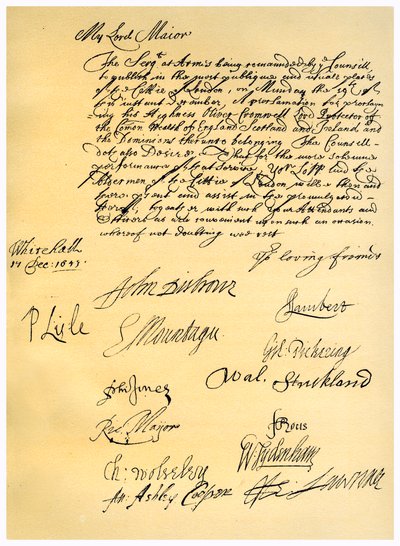 My Lord Maior
The Serjt at Armes being commanded by ye Counsill
to publish in the most publique and usuall places
of ye Cittie of London, on Munday the 19th of
this instant December, A proclamation for proclam
ing his Highness Oliver Cromwell Lord Protector of
the Comon Wealth of England Scotland and Ireland and
the Dominions thereunto belonging The Counsill
doe also Desire, That for the more solemne
performance of that Service, yor Lopp and the
Aldermen of ye Cittie of London will be then and
there present and assist in the
together with your Attendants and
Officers as was convenient upon such an occasion
whereof not doubting wee rest
Yr loving friends
Whitehall
17 Dec: 1653
John Disbrowe
Lambert
P Lisle
E Mountagu
Gil. Pickering
Wal. Strickland
Phi Jones
FRous
Ric. Major
W Sydenham
Ch: Wolseley
An: Ashley Cooper
He: Lawrence